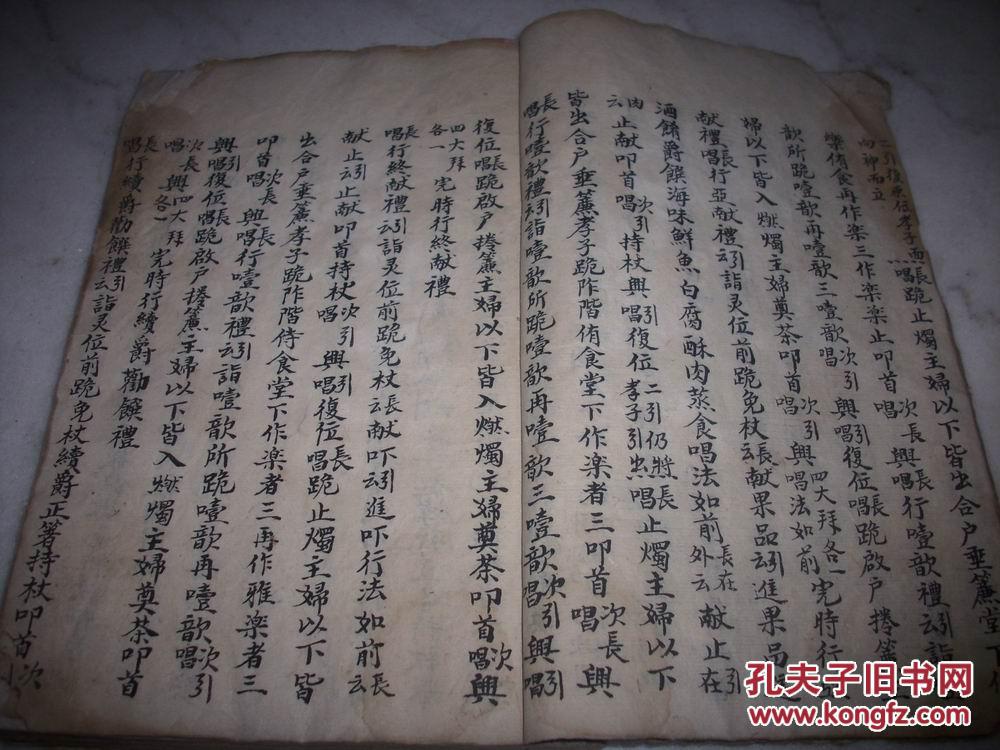 二引復原位孝子西長跪止燭主婦以下皆出合户垂簾堂下作
向神而立
樂侑食再作楽三作楽楽止叩首次長興唱長行噎歆禮云引詣噎
歆所跪噎歆再噎歆三噎歆唱次引興唱引復位唱長跪啟户捲簾主
婦以下皆入燃燭主婦奠茶叩首唱次引興唱法如前四大拜各一完時行亞
献禮唱長行亞献禮云引詣灵位前跪免杖云長献果品云引進果品
酒餚爵饌海味鮮魚白腐酥肉蒸食唱法如前長在外云献止引在
肉云止献叩首唱次引持杖興唱引復位二引仍將孝子引出唱長止燭主婦以下
皆出合户垂簾孝子跪阼階侑食堂下作楽者三叩首唱次長興
唱長行噎歆禮云引詣噎歆所跪噎歆再噎歆三噎歆唱次引興唱引
復位唱長跪啟户捲簾主婦以下皆入燃燭主婦奠茶叩首唱次興
四大拜各一完時行終献禮
唱長行終献禮云引詣灵位前跪免杖云長献吓云引進吓行法如前云長
献止云引止献叩首持杖唱次引興唱引復位唱長跪止燭主婦以下皆
出合户垂簾孝子跪阼階侍食堂下作楽者三再作雅楽者三
叩首唱次長興唱長行噎歆禮云引詣噎歆所跪噎歆再噎歆唱次引
興唱引復位唱長跪啟户捲簾主婦以下皆入燃燭主婦奠茶叩首
唱次長興四大拜各一完時行續爵勸饌禮
唱長行續爵勸饌禮云引詣灵位前跪免杖續爵正箸持杖叩首次
孔夫子旧书网
www.kongfz.com